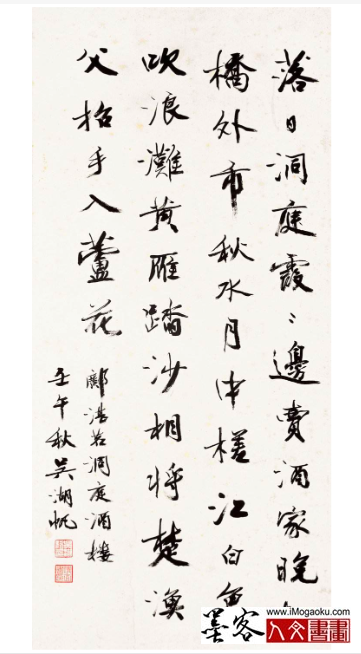 落日洞庭霞〻邊賣酒家晚
橋外市秋水月中槎江白魚
吹浪灘黃雁踏沙相將楚漁
父招手入蘆花
鄺湛若洞庭酒樓
壬午秋吳湖帆
www.iMogaoku.com
墨客人文書畫